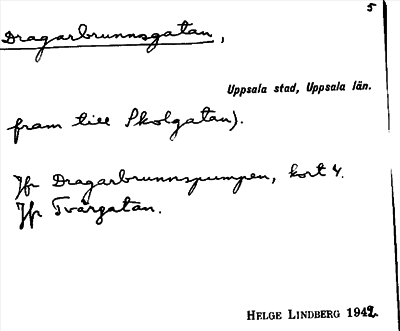 5
Dragarbrunnsgatan,
Uppsala stad, Uppsala län.
fram till Skolgatan).
Jfr Dragarbrunnspumpen, kort 4.
Jfr Tvärgatan.
HELGE LINDBERG 1942